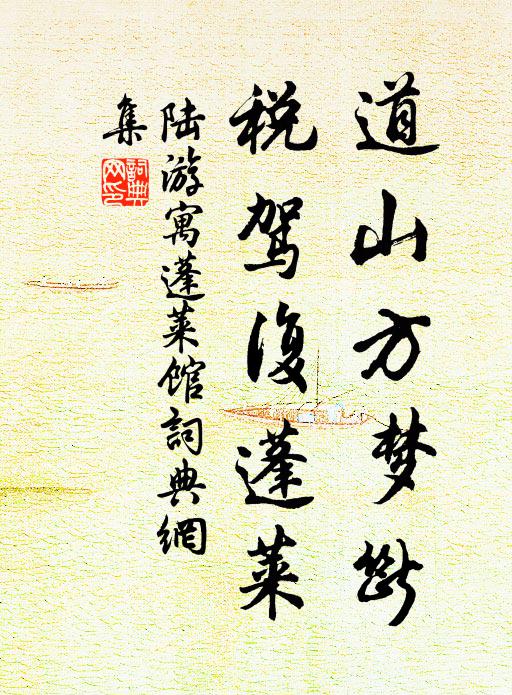 道山方梦断
税驾复蓬莱
陆游寓蓬莱馆詞典網
集
詞典网印